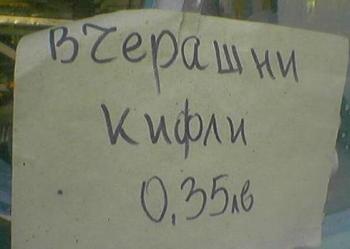 вчерашни
кифли
0,35лв